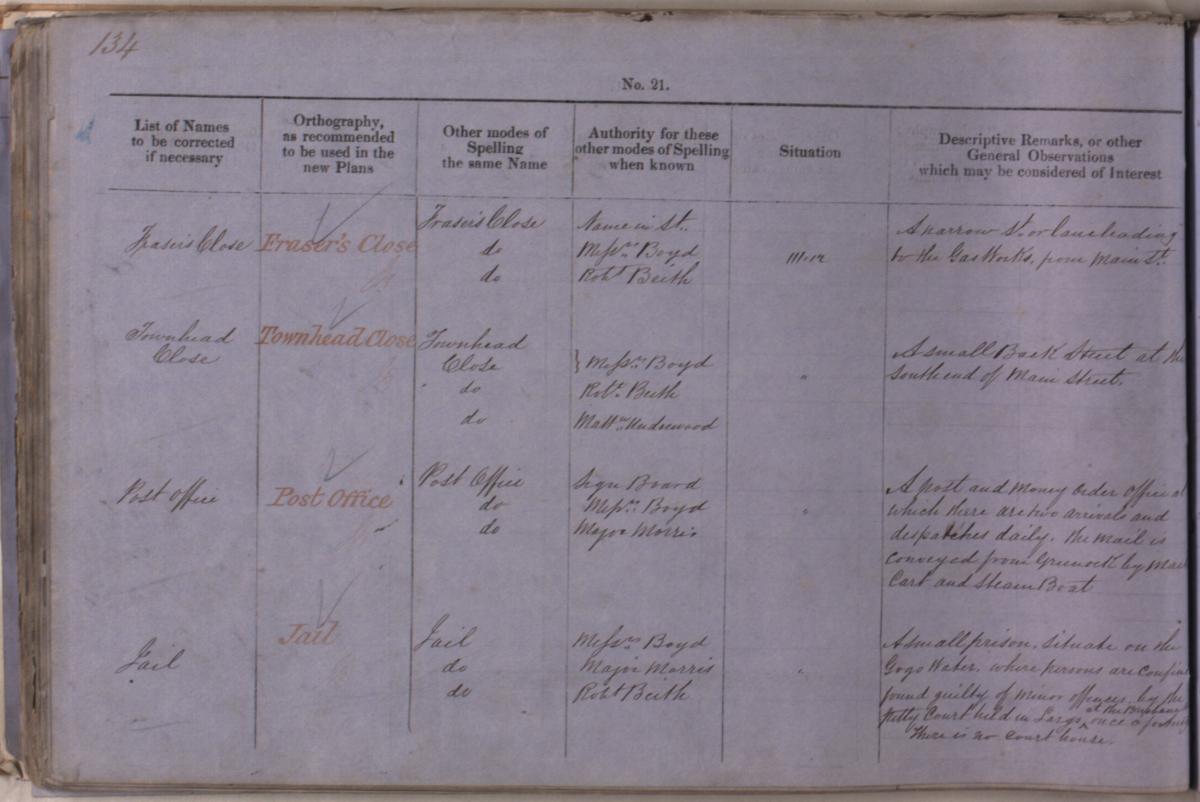 134
No. 21.
List of Names to be corrected if necessary
Orthography, as recommended to be used in the new Plans
Other modes of Spelling the same Name
Authority for these other modes of Spelling when known
Situation
Descriptive Remarks, or other General Observations which may be considered of Interest
Frasers Close Fraser's Close
Frasers Close Name in St.
do Messrs. Boyd
do Robt Beith
A narrow St. or lane leading
to the Gas Works, from Main St.
Townhead
Close
Townhead Close
Townhead
Close } Messrs. Boyd
do Robt. Beith
do Mattw. Underwood
"
A small Back Street at the
South end of Main Street.
Post office Post Office
Post Office Sign Board
do Messrs. Boyd
do Major Morris
"
A post and Money order office at
which there are two arrivals and
despatches daily. the mail is
conveyed from Greenock by Mail
Cart and Steam Boat
Jail Jail
Jail Messrs Boyd
do Major Morris
do Robt Beith
"
A small prison. situate on the
Gogo Water. where persons are
found guilty of minor offences by the
petty Court held in Largs at the once a
There is no court house.